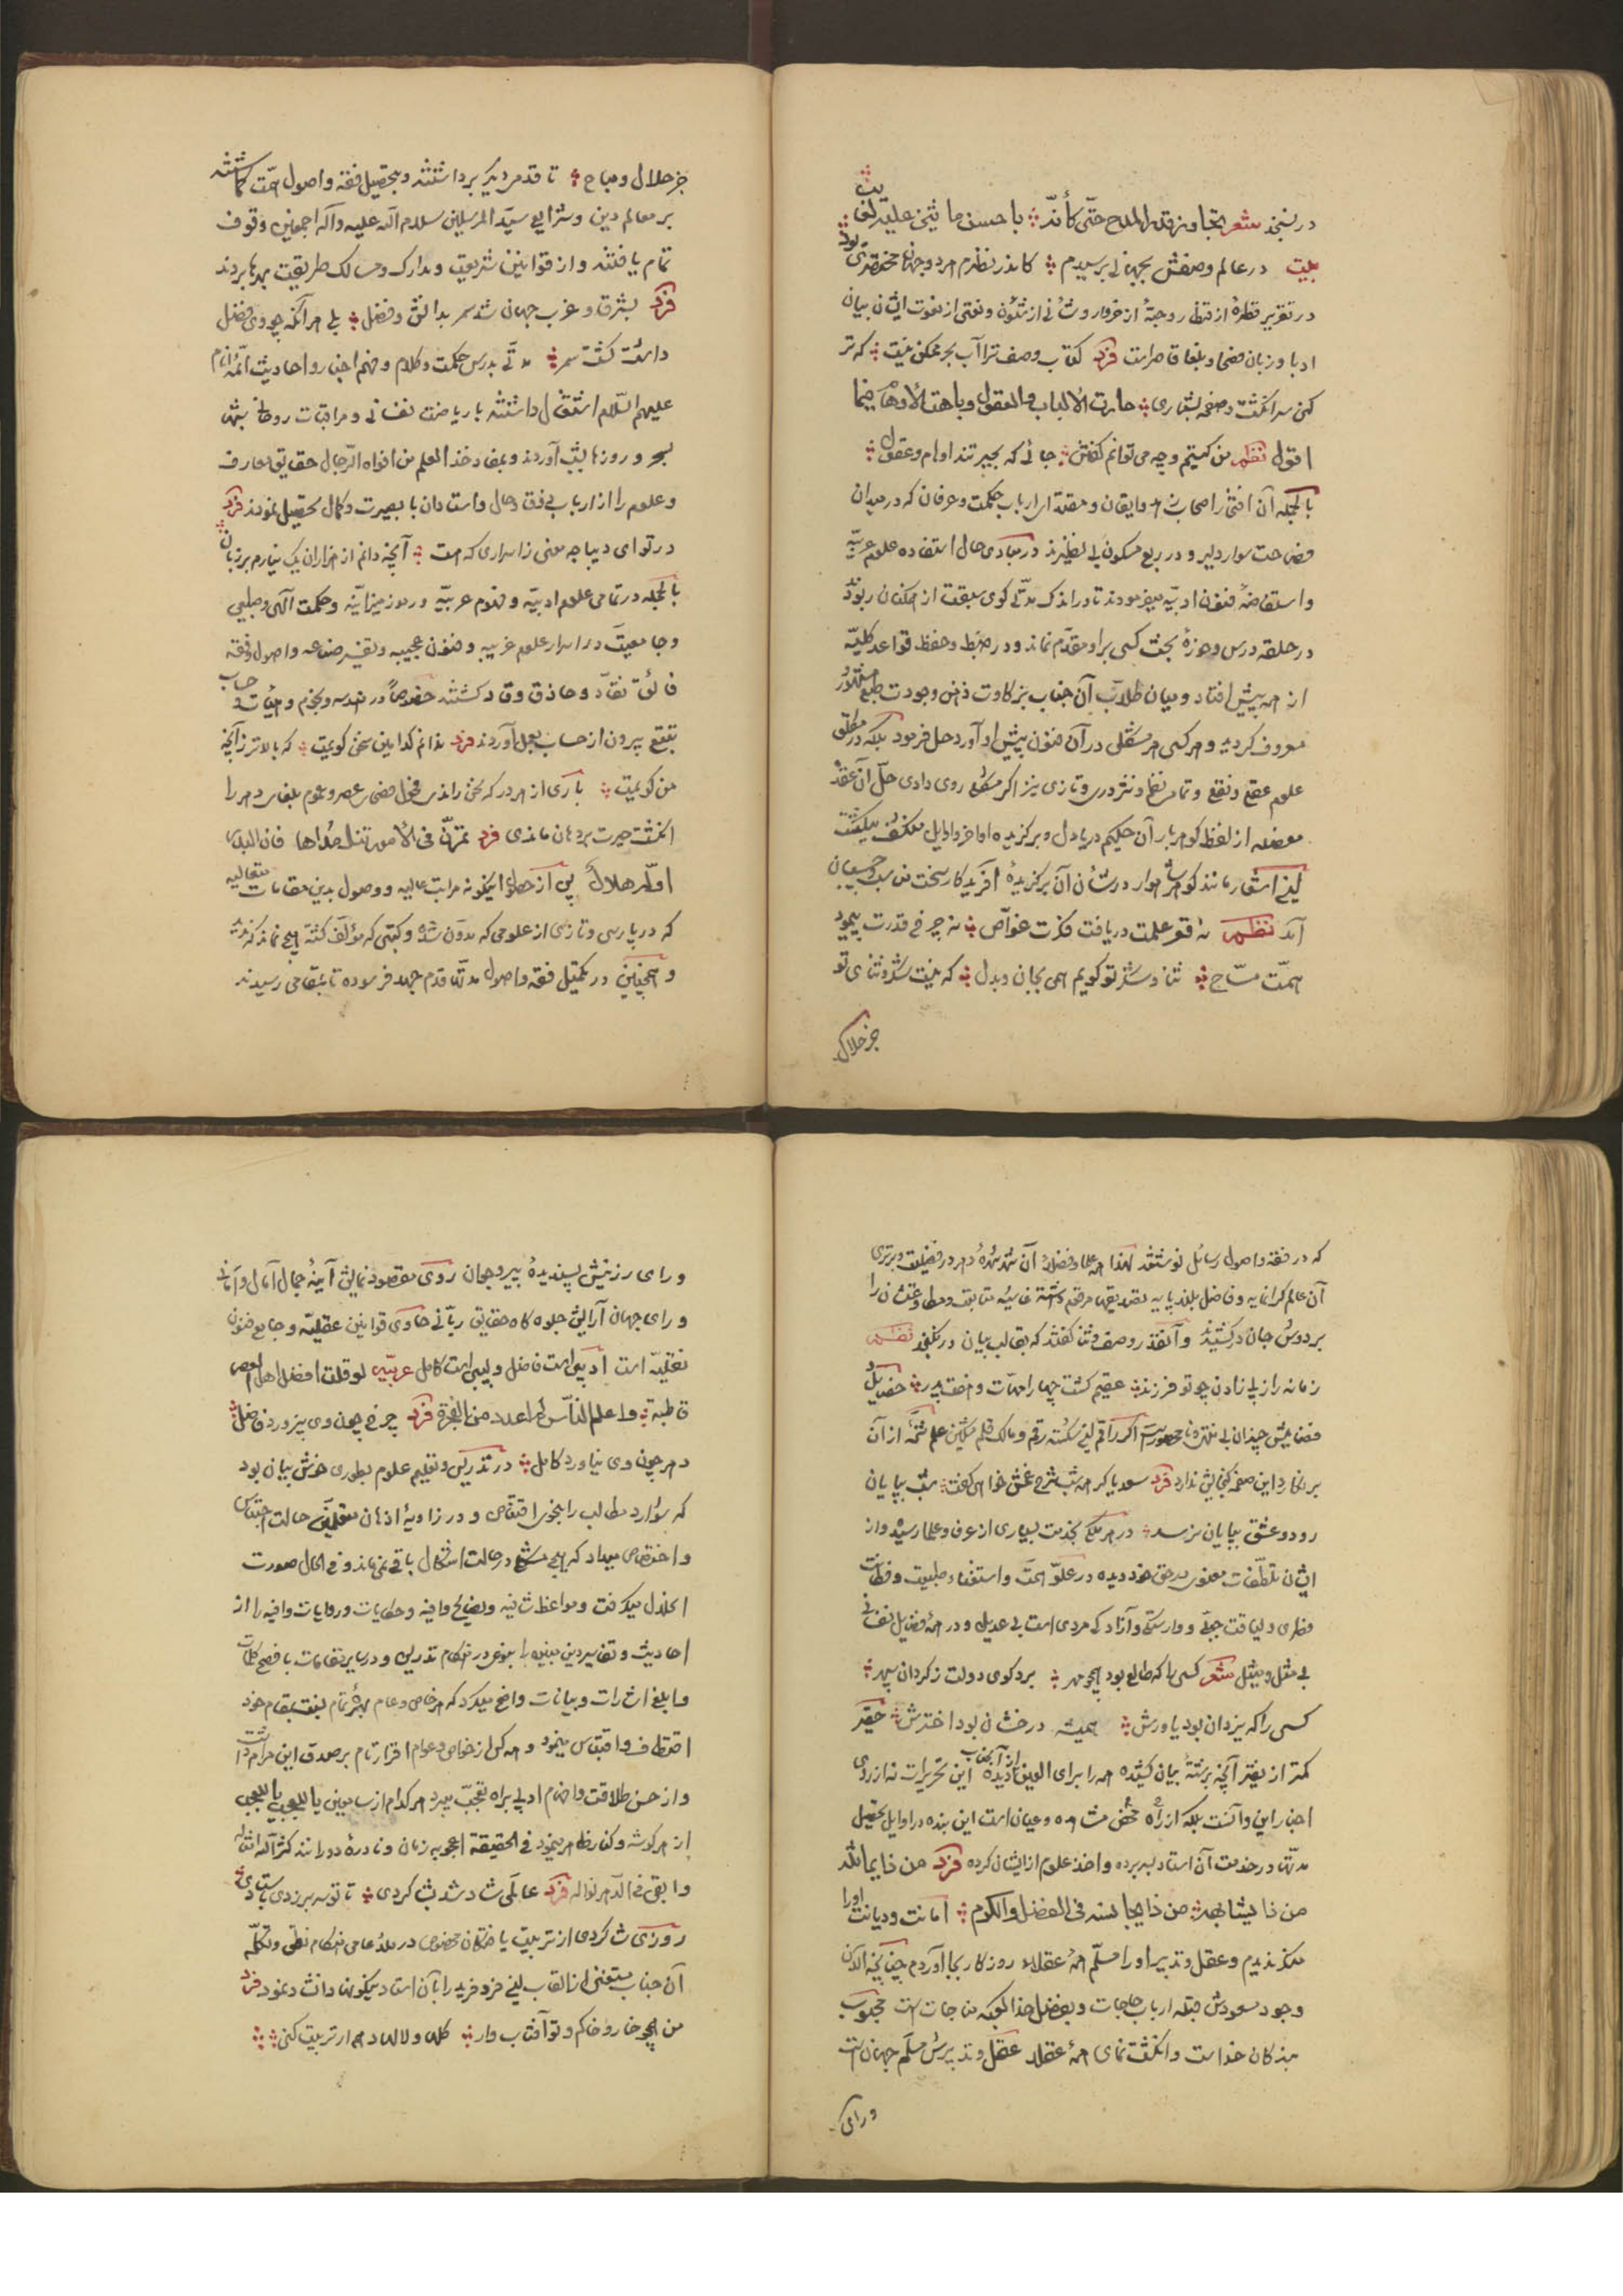 در نسنجد شعر تجاوز قدر المدح حتی کأنه باحسن ما یثنی علیه
بیت در عالم وصفش بجهانی برسیدم کاندر نظرم هر دو جهان مختصری بود
در تقریر قطرهٔ از قطار و حبهٔ از خروار و شأنی از شئون و نعتی از نعوت ایشان بیان
ادبا و زبان فصحا و بلغا قاصر است فرد کتاب وصف ترا آب بحر ممکن نیست که تر
کنی سر انگشت و صفحه بشماری حارت الالباب والعقول وباهت الاوهام فیما
اقول نظم من کیستم و چه می توانم گفتن جائی که بحیرتند اوهام و عقول
بالجمله آن افتخار اصحاب و ایقان و مقتدای ارباب حکمت و عرفان که در میدان
فصاحت سوار دلیر و در ربع مسکون بی نظیرند در مبادی حال استفاده علوم عربیه
و استفاضهٔ فنون ادبیه میفرمودند تا در اندک مدتی گوی سبقت از همگنان ربود
در حلقه درس و حوزهٔ بحث کسی بر او مقدم نماند و در ضبط و حفظ قواعد کلیه
از همه پیش افتاد و میان طلاب آن جناب بزکاوت ذهن و جودت طبع مشهور
معروف گردید و هر کس هر مشکلی در آن فنون پیش او آورد حل فرمود بلکه در مطلق
علوم عقلی و نقلی و تمام نظم و نثر دری و تازی نیز اگر مشکلی روی دادی حل آن عقد
معضله از لفظ گوهربار آن حکیم دریا دل و برگزیده اواخر و اوایل منکشف میگشت
لیغ اشعار مانند گوهر شاهوار در شأن آن برگزیدهٔ آفریدگار سخت مناسب و چسبان
آمد نظم نه قعر علمت دریافت فکرت غواص نه چرخ قدرت پیمود
همت مساح ثنا و شکر تو گویم همی بجان و بدل که نیست شکر و ثنای تو
جز حلال
جز حلال و مباح تا قدم دیگر برداشتند و بتحصیل فقه و اصول همت گماشتند
بر معالم دین و شرایع سید المرسلین سلام الله علیه و آله اجمعین وقوف
تمام یافتند و از قوانین شریعت و مدارک و مسالک طریقت بهره‌ها بردند
فرد بشرق و غرب جهان شد سمر بدانش و فضل بلی هر آنکه چو وی فضل
داشت گشت سمر مدتی بدرس حکمت و کلام و فهم اخبار و احادیث ائمه انام
علیهم السلام اشتغال داشتند با ریاضت نفسانی و مراقبات روحانی شبها
بسحر و روزها بشب آوردند و بمفاد خذ العلم من افواه الرجال حقایق معارف
و علوم را از ارباب ذوق و حال و استادان با بصیرت و کمال تحصیل نمودند فرد
در تو ای دیباچه معنی ز اسراری که هست آنچه دانم از هزاران یک نیارم بر زبان
بالجمله در تمامی علوم ادبیه و فنون عربیه و رموز میزانیه و حکمت الهی و طبیعی
و جامعیت در اسرار علوم غریبه و فنون عجیبه و تفسیر صناعه و اصول و فقه
فائق نقاد و حاذق وقاد گشتند خصوصاً در هندسه و نجوم و هیأت و حساب
تتبع بیرون از حساب بعمل آوردند فرد ندانم کدامین سخن گویمت که بالاتر ز آنچه
من گویمت باری از هر در که سخن راندی فحول فضلای عصر و عموم بلغای دهر را
انگشت حیرت بر دهان ماندی فرد تمرن فی الامور تنل مداها فان البدر
اوله هلال پس از حصول اینگونه مراتب عالیه و وصول بدین مقامات متعالیه
که در پارسی و تازی از علومی که مدون شده و کتبی که مؤلف گشته هیچ نماند که ندید
و همچنین در تکمیل فقه و اصول مدتها قدم جهد فرسوده تا بمقامی رسیدند
که در فقه و اصول رسائل نوشتند لهذا همه علما و فضلا آن شهر شهرهٔ دهر در فضیلت و برتری
آن عالم گرانمایه و فاضل بلند پایه تصدیقها مرقوم داشته غاشیه متابعت و مطاوعتشان را
بر دوش جان در کشیدند و آنقدر وصف و ثنا گفتند که بقالب بیان در نگنجد نظم
زمانه را ز پی زادن چو تو فرزند عقیم گشت چهار امهات و هفت پدر خصایل و
فضایلش چندان بی منتهی و نامحصور است اگر راقم لیغ شکسته رقم و مالک قلم مشکین علم شمهٔ از آن
بر نگارد این صفحه گنجایش ندارد فرد سعدیا گر همه شب شرح غمش خواهی گفت شب بپایان
رود و عشق بپایان نرسد در هر ملک بخدمت بسیاری از عرفا و علما رسیده و از
ایشان تلطفات معنوی در حق خود دیده در علو همت و استغناء طبیعت و فطانت
فطری و لیاقت جبلی و وارستگی و آزادگی مردی است بی عدیل و در همهٔ فضایل نفسانی
بی مثل و مثیل شعر کسی را که طالع بود همچو مهر برد گوی دولت ز گردان سپهر
کسی را که یزدان بود یاورش همیشه درخشان بود اخترش حقیر
کمتر از فقیر آنچه برشتهٔ بیان کشیده همه را برای العین از آنجناب دیده این تحریرات نه از روی
اخبار این و آنست بلکه از راه محض مشاهده و عیان است این بنده در اوایل تحصیل
مدتها در خدمت آن استاد بسر برده و اخذ علوم از ایشان کرده فرد من ذا یماثله
من ذا یشابهه من ذا یجانسه فی الفضل والکرم امانت و دیانت او را
منکر ندیدم و عقل و تدبیر او را مسلم همهٔ عقلاء روزگار بجا آوردم چنانچه الان
وجود مسعودش قبله ارباب حاجات و بفضل خدا کعبه مناجات است محبوب
بندگان خداست و انگشت نمای همهٔ عقلا عقل و تدبیرش مسلم جهان است
و رای
و رای رزینش پسندیدهٔ پیر و جوان روی مقصود نمایش آینهٔ جمال آمال و امانی
و رای جهان آرایش جلوه گاه حقایق ربانی حاوی قوانین عقلیه و جامع فنون
نقلیه است ادیبی است فاضل و لبیبی است کامل عربیه لو قلت افضل اهل العصر
قاطبة واعلم الناس فرد چرخ چون وی نپرورد فاضل
دهر چون وی نیاورد کامل در تدریس و تعلیم علوم بطوری خوش بیان بود
که شوارد مطالب را بنحوی اقتناص و در زاویهٔ اذهان متعلمین حالت احتباس
و اختصاص میداد که هیچ مشکل در حالت اشکال باقی نمی ماند و فی الحال صورت
انحلال میگرفت و مواعظ شافیه و نصایح وافیه و حکایات و روایات وافیه را از
احادیث و تفاسیر دین مبین بنوعی در هنگام تدریس و در سایر مقامات بافصح کلمات
و ابلغ اشارات و بیانات واضح میکرد که هر خاص و عام بهرهٔ تمام بقدر مقام خود
اقتطاف و اقتباس مینمود و همه کس از خواص و عوام اقرار تام بر صدق این مرام داشت
و از حسن طلاقت و افهام ادبی براه تعجب میبرد هر کدام از سامعین یا للعجب یا للعجب
از هر گوشه و کنار ظاهر مینمود فی الحقیقة اعجوبه زمان و نادرهٔ دورانند کثر الله امثاله
و ابقی فی الدهر نواله فرد عالمی شاد شد بشاگردی تا تو سر بر زدی باستادی
روزی شاگردی از تربیت یافتگان مخصوص در ملاء عامی هنگام نطق و تکلم
آن جناب مستغنی از القاب لیغ فرد فرید را بآن استاد نیکو نهاد انشاد نمود فرد
من همچو خار و خاکم و تو آفتاب وار گلها و لاله‌ها دهم ار تربیت کنی